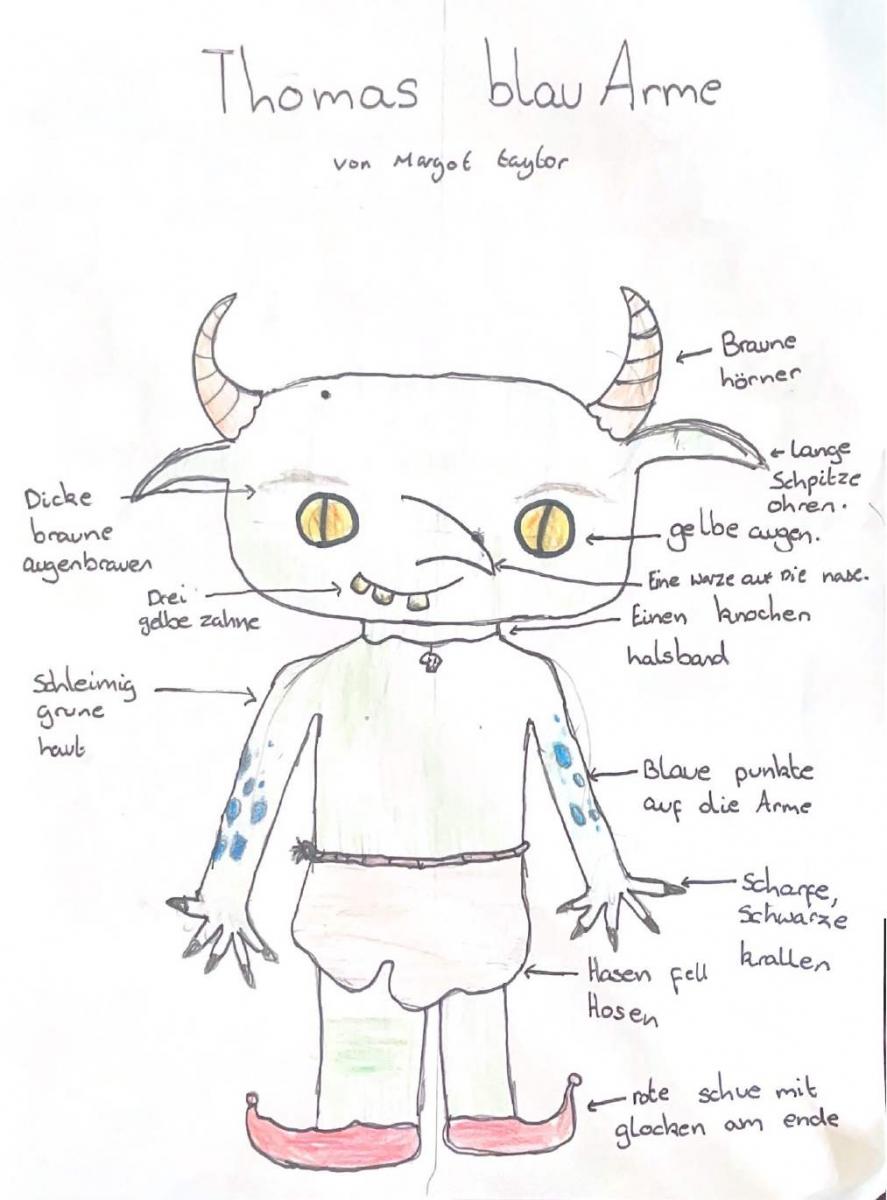 Thomas blau Arme
von Margot taylor
Braune
hörner
lange
Schpitze
ohren.
Dicke
braune
augenbrauen
gelbe augen.
Eine warze auf Die nase.
Drei
gelbe zahne
Einen knochen
halsband
Schleimig
grune
haut
Blaue punkte
auf die Arme
Scharfe,
Schwarze
krallen
Hasen fell
Hosen
rote schue mit
glocken am ende